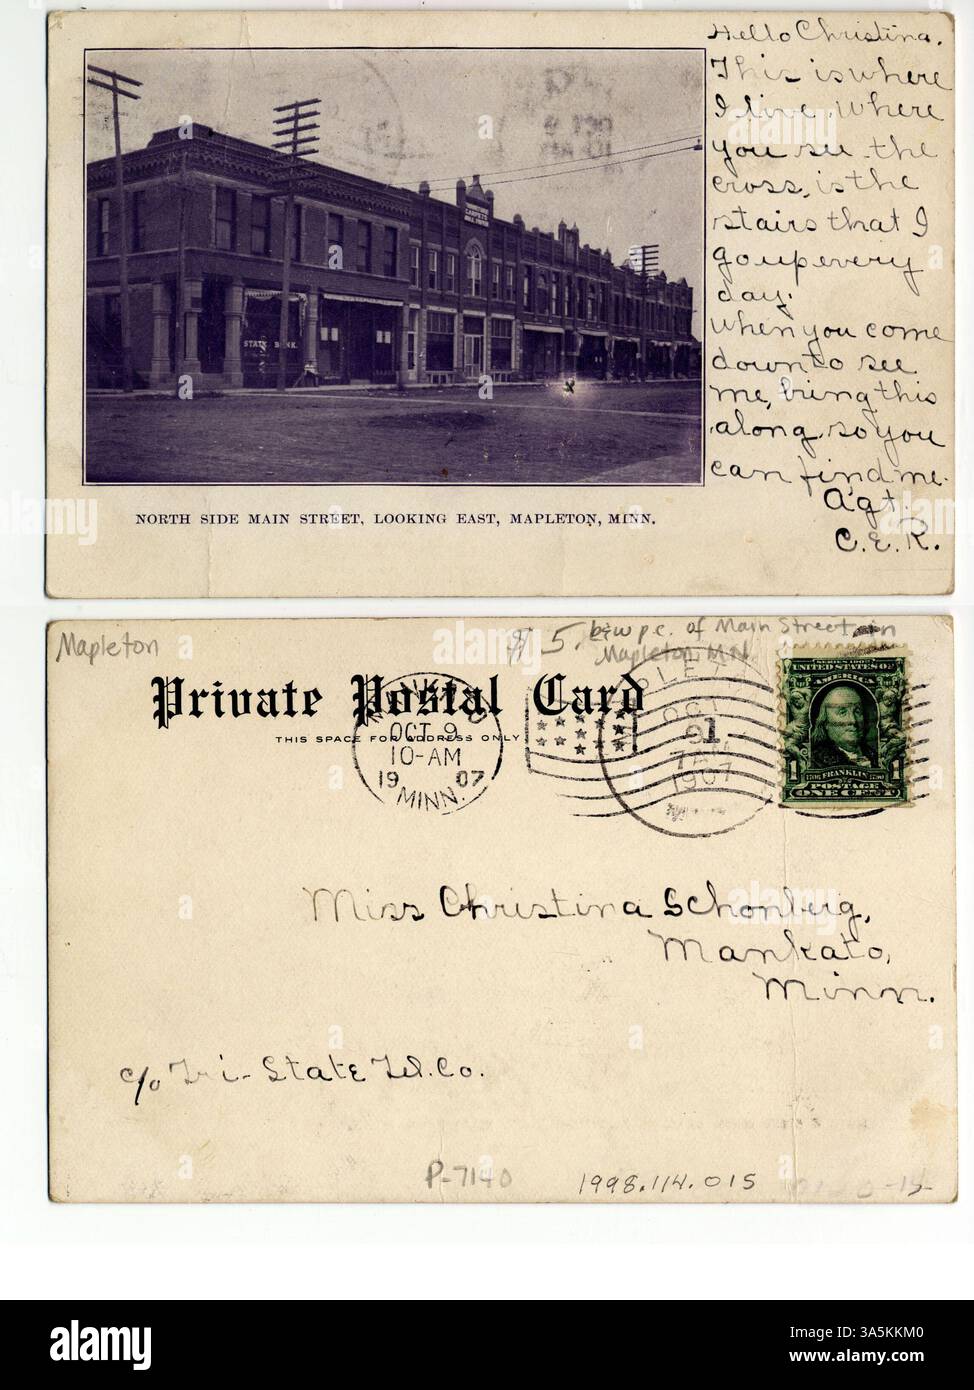 Hello Christina.
This is where
I live, Where
you see the
cross, is the
stairs that I
go up every
day.
When you come
down to see
me, bring this
along, so you
can find me.
Agt.
C. E. R.
CARPETS
WALL PAPER
STATE BANK.
NORTH SIDE MAIN STREET, LOOKING EAST, MAPLETON, MINN.
Mapleton
$ 5. b+w p.c. of Main Street in
Mapleton, MN
Private Postal Card
THIS SPACE FOR ADDRESS ONLY
MANKATO
OCT 9
10-AM
1907
MINN.
OCT
9
7AM
1907
1
SERIES 1902
UNITED STATES OF
AMERICA
1706 FRANKLIN 1790
1 POSTAGE 1
ONE CENT
Miss Christina Schonberg,
Mankato,
Minn.
c/o Tri-State Tel. Co.
P-7140
1998.114.015
alamy
Image ID: 3A5KKM0
www.alamy.com